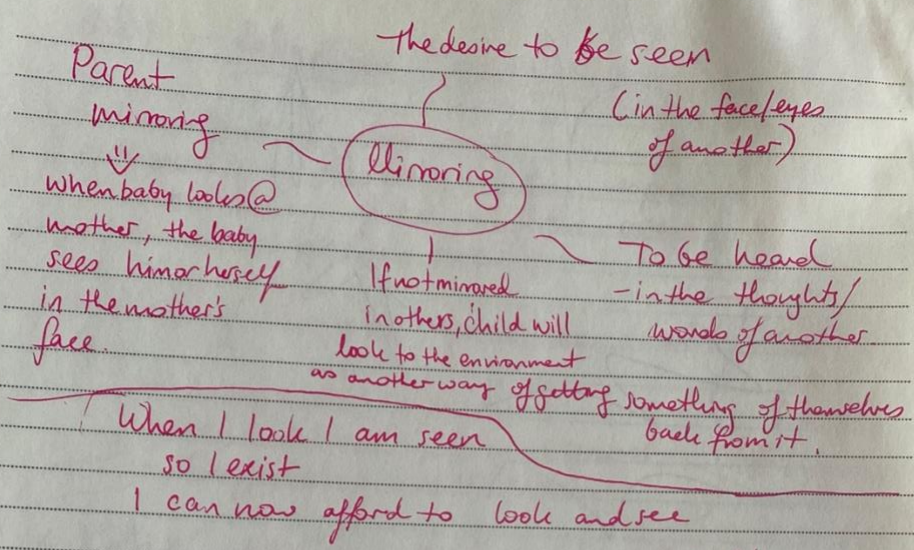 The desire to be seen
(in the face/eyes
of another)
Parent
mirroring
when baby looks @
mother, the baby
sees him or herself
in the mother's
face.
Mirroring
To be heard
- in the thoughts/
words of another
If not mirrored
in others, child will
look to the environment
as another way of getting something of themselves
back from it.
When I look I am seen
so I exist
I can now afford to look and see